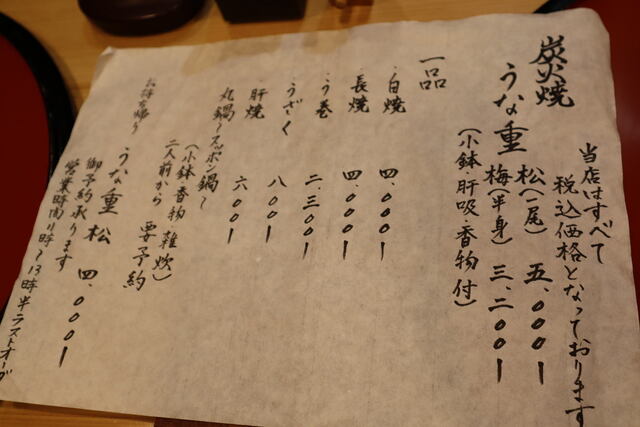 当店はすべて
税込価格となっております
炭火焼
うな重 松(一尾) 五、〇〇〇ー
梅(半身) 三、二〇〇ー
(小鉢・肝吸・香物付)
一品
・白焼 四、〇〇〇ー
・長焼 四、〇〇〇ー
・う巻 二、三〇〇ー
・うざく 八〇〇ー
・肝焼 六〇〇ー
丸鍋〜スッポン鍋〜
(小鉢香物 雑炊)
二人前から 要予約
お持ち帰り
うな重 松 四、〇〇〇ー
御予約承ります
営業時間11時〜13時半ラストオーダ